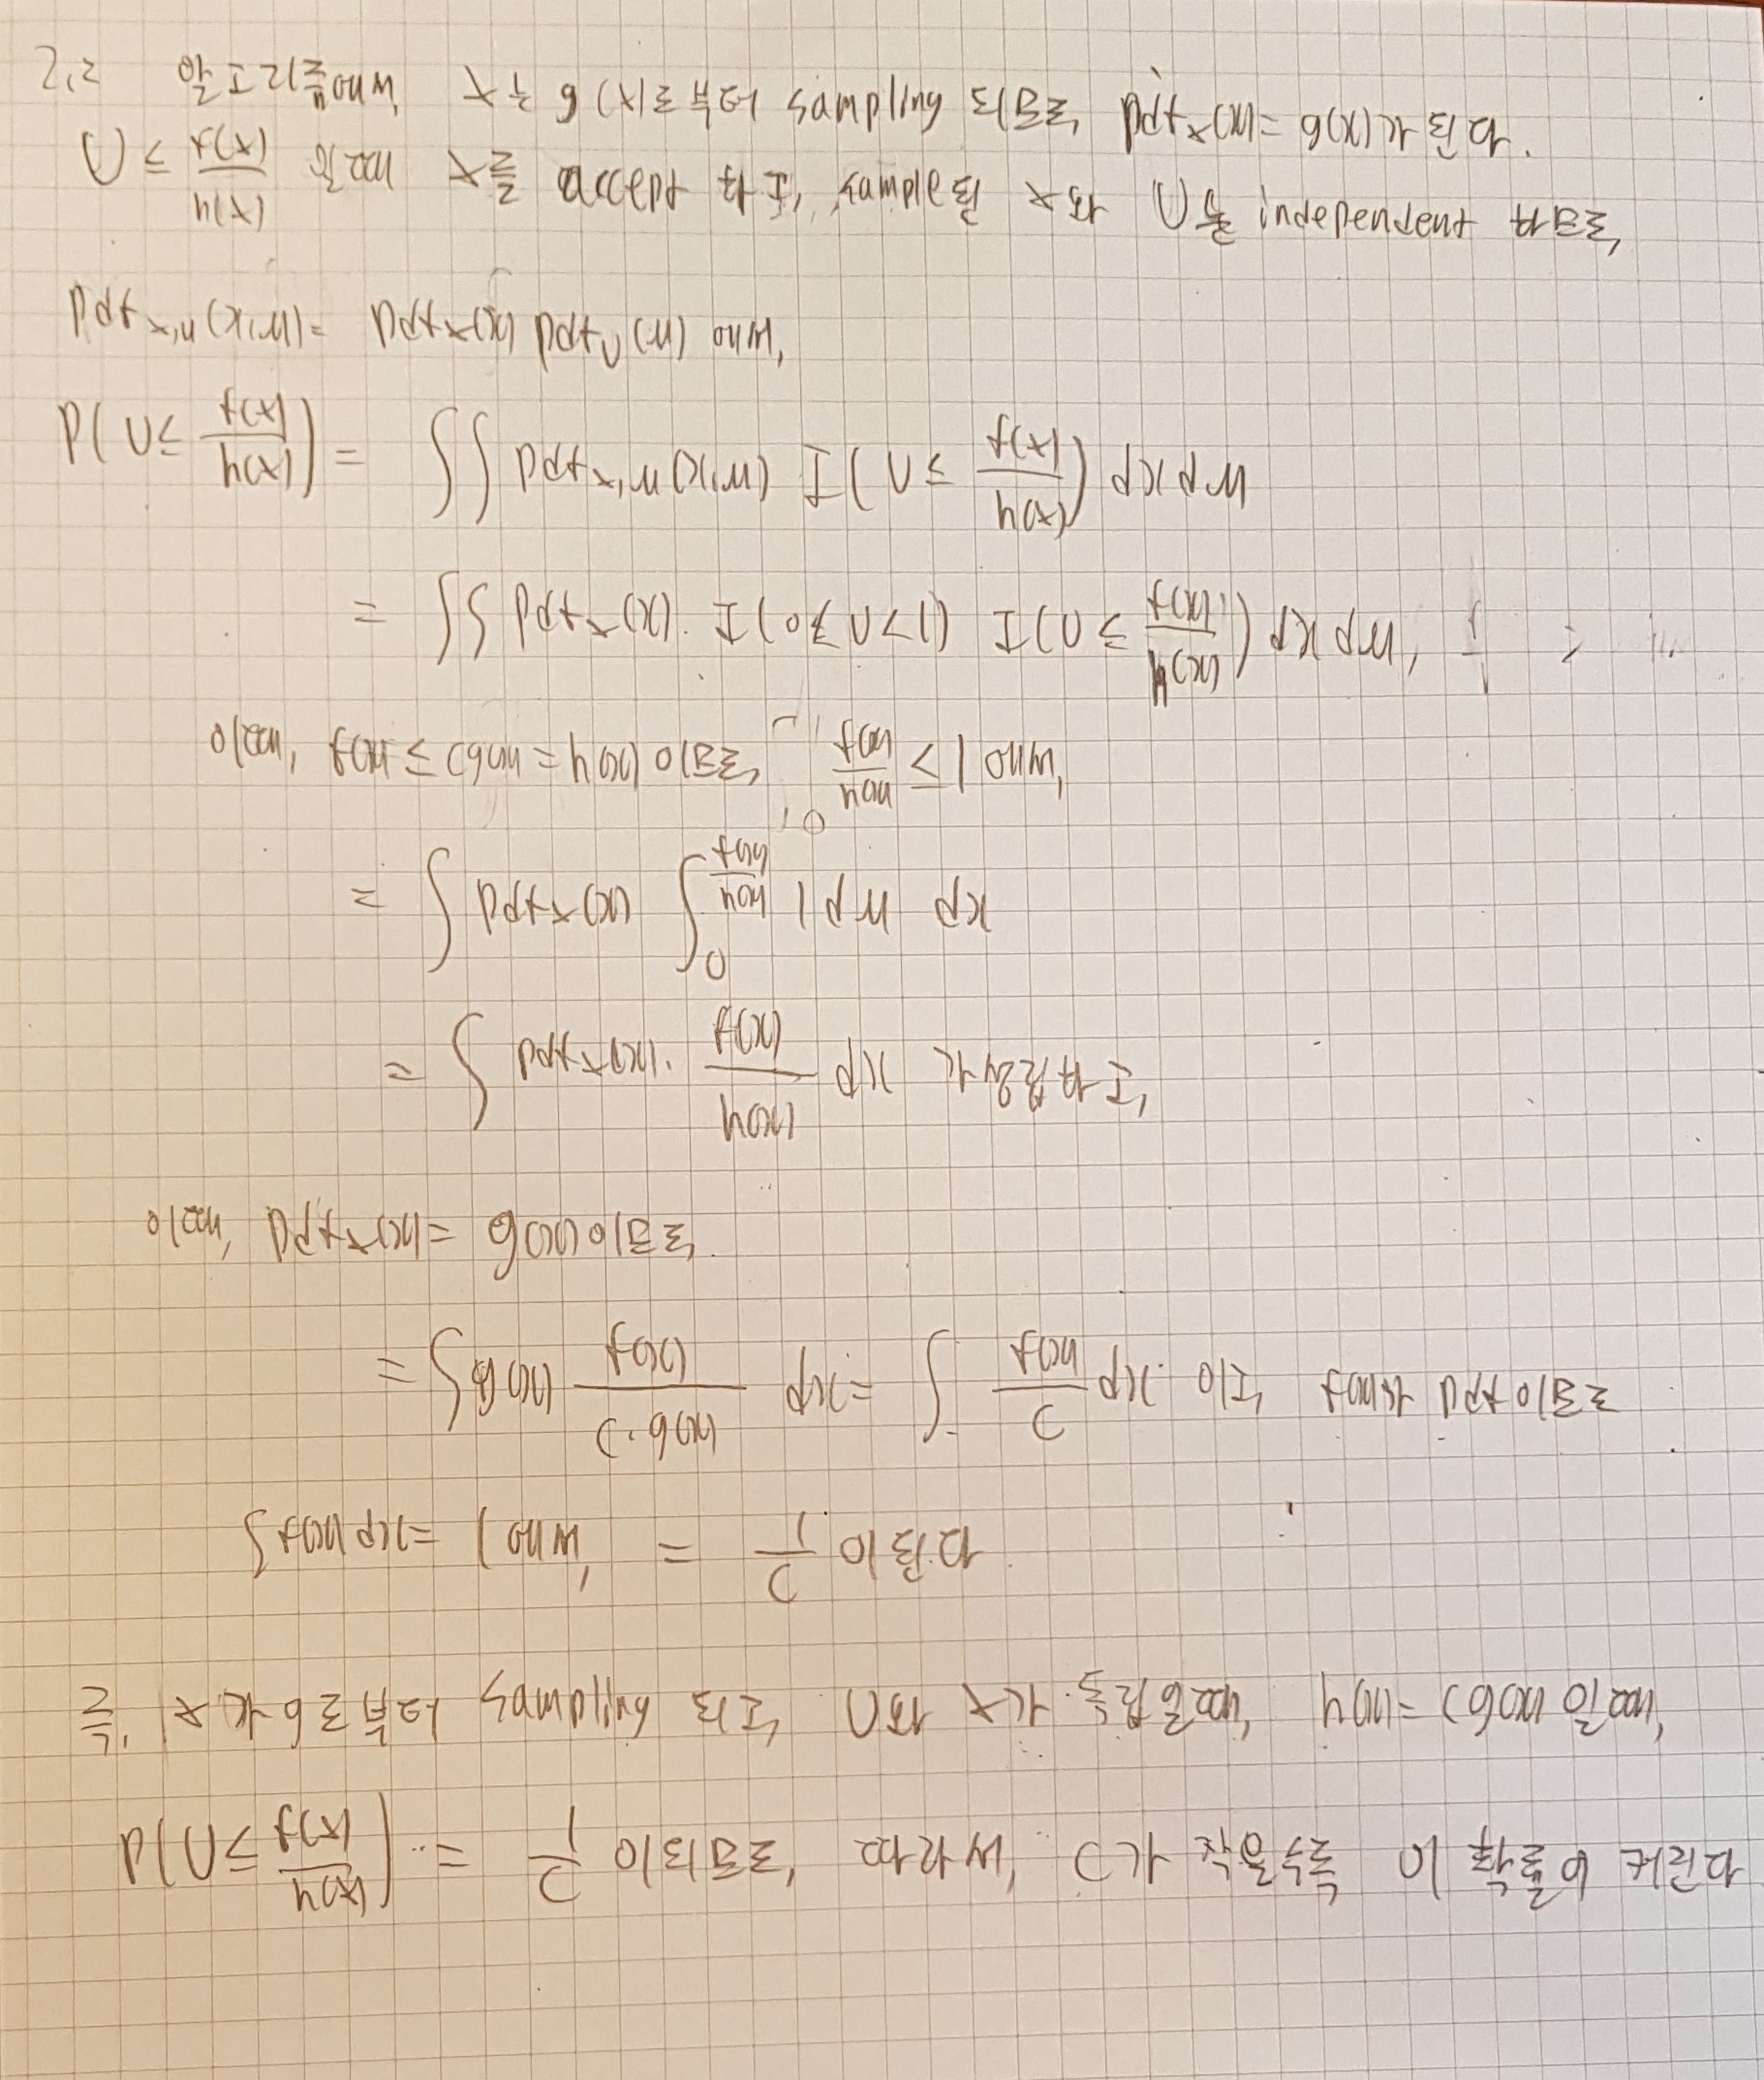 2.2 알고리즘에서, X는 g(x)로부터 sampling 되므로, pdf_X(x) = g(x)가 된다.
U ≤ f(X)/h(X) 일때 X를 accept 하고, sample된 X와 U는 independent 하므로,
pdf_{X,U}(x,u) = pdf_X(x) pdf_U(u) 에서,
P(U ≤ f(X)/h(X)) = ∫∫ pdf_{X,U}(x,u) I(U ≤ f(x)/h(x)) dx du
= ∫∫ pdf_X(x) · I(0≤U<1) I(U ≤ f(x)/h(x)) dx du,
이때, f(x) ≤ cg(x) = h(x) 이므로, f(x)/h(x) ≤ 1 에서,
= ∫ pdf_X(x) ∫_0^{f(x)/h(x)} 1 du dx
= ∫ pdf_X(x) · f(x)/h(x) dx 가 성립하고,
이때, pdf_X(x) = g(x) 이므로,
= ∫ g(x) f(x)/(c·g(x)) dx = ∫ f(x)/c dx 이고, f(x)가 pdf이므로
∫f(x)dx = 1 에서, = 1/c 이 된다
즉, X가 g로부터 sampling 되고, U와 X가 독립일때, h(x) = cg(x) 일때,
P(U ≤ f(X)/h(X)) = 1/c 이 되므로, 따라서, c가 작을수록 이 확률이 커진다